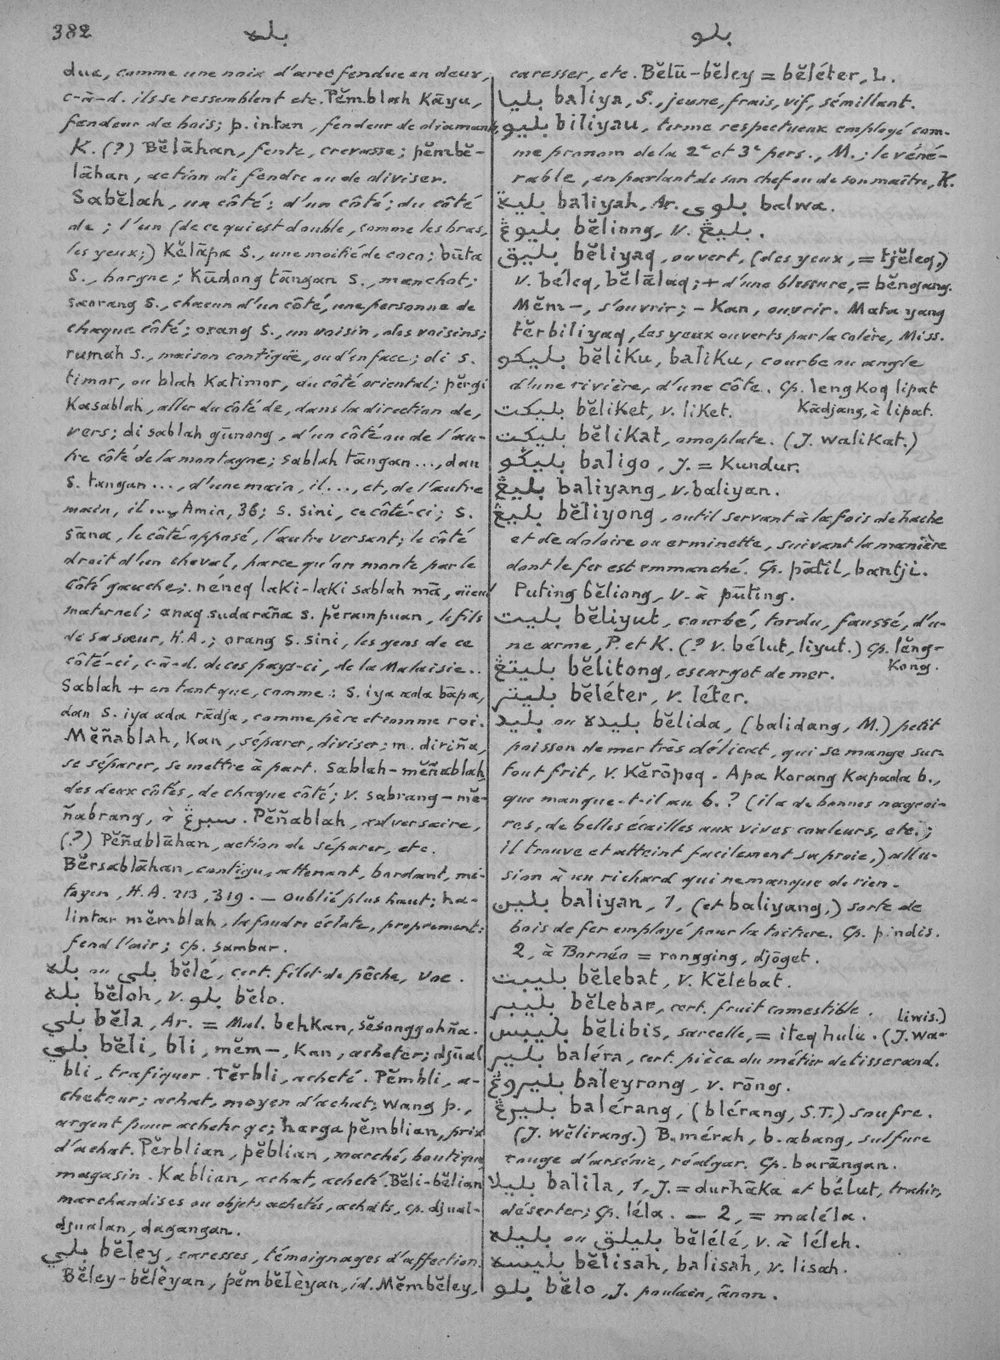 382
بله
بلو
due, comme une noix d'arec fendue en deux,
c-à-d. ils se ressemblent etc. Pĕmblah Kāyu,
fendeur de bois; p. intan, fendeur de diamant,
K. (?) Bĕlāhan, fente, crevasse; pĕmbĕ-
lāhan, action de fendre ou de diviser.
Sabĕlah, un côté; d'un côté; du côté
de; l'un (de ce qui est double, comme les bras,
les yeux;) Kĕlāpa S., une moitié de coco; būta
S., borgne; Kūdong tāngan S., manchot;
saorang S., chacun d'un côté, une personne de
chaque côté; orang S., un voisin, des voisins;
rumah S., maison contiguë, ou d'en face; di S.
timor, ou blah Katimor, au côté oriental; pĕrgi
Kasablah, aller du côté de, dans la direction de,
vers; di sablah gūnong, d'un côté ou de l'au-
tre côté de la montagne; sablah tāngan ..., dan
S. tangan ..., d'une main, il ..., et, de l'autre
main, il ... Amin, 36; S. sini, ce côté-ci; S.
sāna, le côté opposé, l'autre versant; le côté
droit d'un cheval, parce qu'on monte par le
côté gauche; néneq laki-laki sablah mā, aïeul
maternel; anaq sudarāña S. pĕrampuan, le fils
de sa sœur, H.A.; orang S. sini, les gens de ce
côté-ci, c-à-d. de ces pays-ci, de la Malaisie..
Sablah + en tant que, comme: S. iya ada bāpa,
dan S. iya ada rādja, comme père et comme roi.
Mĕñablah, Kan, séparer, diviser; m. diriña,
se séparer, se mettre à part. Sablah-mĕñablah,
des deux côtés, de chaque côté; v. sabrang-mĕ-
ñabrang, à سبرڠ. Pĕñablah, adversaire,
(?) Pĕñablāhan, action de séparer, etc.
Bĕrsablāhan, contigu, attenant, bordant, mi-
toyen, H.A. 213, 319. — Oublié plus haut; ha-
lintar mĕmblah, la foudre éclate, proprement:
fend l'air; cp. sambar.
بله ou بلي bĕlé, cert. filet de pêche, Voc.
بله bĕloh, v. بلو bĕlo.
بلي bĕla, Ar. = Mal. behkan, sĕsonggohña.
بلي bĕli, bli, mĕm-, Kan, acheter; djūal
bli, trafiquer. Tĕrbli, acheté. Pĕmbli, a-
cheteur; achat, moyen d'achat; wang p.,
argent pour acheter qc; harga pĕmblian, prix
d'achat. Pĕrblian, pĕblian, marché, boutique,
magasin. Kablian, achat, acheté. Bĕli-bĕlian
marchandises ou objets achetés, achats, cp. djual-
djualan, dagangan.
بلي bĕley, caresses, témoignages d'affection.
Bĕley-bĕlèyan, pĕmbĕlèyan, id. Mĕmbĕley,
caresser, etc. Bĕlū-bĕley = bĕléter, L.
بليا baliya, S., jeune, frais, vif, sémillant.
بليو biliyau, terme respectueux employé com-
me pronom de la 2e et 3e pers., M.; le véné-
rable, en parlant de son chef ou de son maître, K.
بلية baliyah, Ar. بلوى balwa.
بليوڠ bĕliong, v. بليڠ.
بليق bĕliyaq, ouvert, (des yeux, = tjĕleq,)
v. béleq, bĕlālaq; + d'une blessure, = bĕngang.
Mĕm-, s'ouvrir; - Kan, ouvrir. Mata yang
tĕrbiliyaq, les yeux ouverts par la colère, Miss.
بليكو bĕliku, baliku, courbe ou angle
d'une rivière, d'une côte. Cp. lengkoq lipat
Kādjang, à lipat.
بليكت bĕliket, v. liket.
بليكت bĕlikat, omoplate. (J. walikat.)
بليݢو baligo, J. = Kundur.
بليڠ baliyang, v. baliyan.
بليڠ bĕliyong, outil servant à la fois de hache
et de doloire ou erminette, suivant la manière
dont le fer est emmanché. Cp. pātil, bantji.
Puting bĕliong, v. à pūting.
بليت bĕliyut, courbé, tordu, faussé, d'u-
ne arme, P. et K. (? v. bélut, liyut.) Cp. lĕng-
Kong.
بليتڠ bĕlitong, escargot de mer.
بليتر bĕléter, v. léter.
بليد ou بليده bĕlida, (balidang, M.) petit
poisson de mer très délicat, qui se mange sur-
tout frit, v. Kĕrōpeq. Apa Korang Kapada b.,
que manque-t-il au b.? (il a de bonnes nageoi-
res, de belles écailles aux vives couleurs, etc.;
il trouve et atteint facilement sa proie,) allu-
sion à un richard qui ne manque de rien.
بلين baliyan, 1, (et baliyang,) sorte de
bois de fer employé pour la toiture. Cp. pindis.
2, à Bornéo = rongging, djōget.
بليبت bĕlebat, v. Kĕlebat.
بليبر bĕlebar, cert. fruit comestible.
بليبس bĕlibis, sarcelle, = iteq hulu. (J. wa-
liwis.)
بلير baléra, cert. pièce du métier de tisserand.
بليروڠ baleyrong, v. rōng.
بليرڠ balérang, (blérang, S.T.) soufre.
(J. wĕlirang.) B. mérah, b. abang, sulfure
rouge d'arsénic, réalgar. Cp. barāngan.
بليلا balila, 1, J. = durhāka et bélut, trahir,
déserter; Cp. léla. — 2, = maléla.
بليله ou بليلق bĕlélé, v. à léleh.
بليسه bĕlisah, balisah, v. lisah.
بلو bĕlo, J. poulain, ânon.